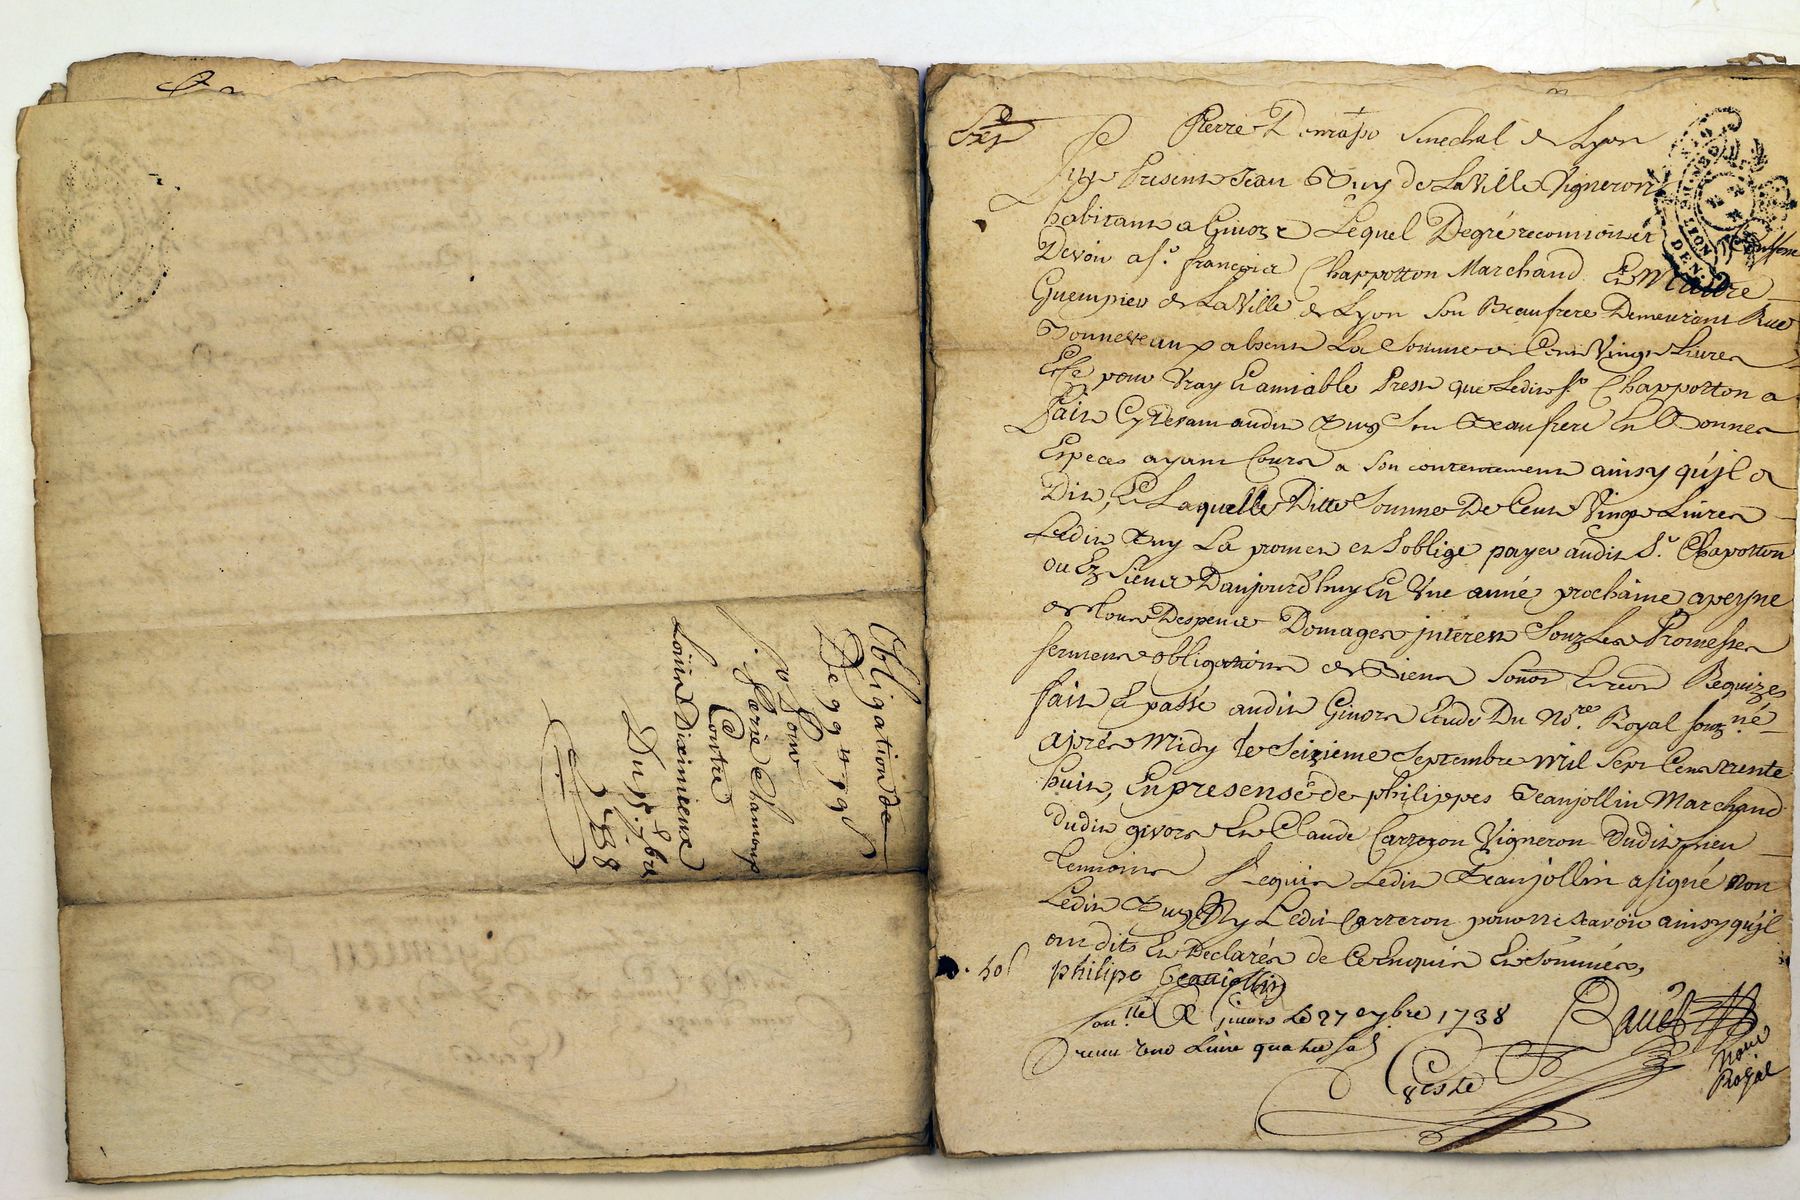 Obligation de
99 lt 19 s
Pour
Pierre Chamoup
Contre
Du 15. 7bre
1738
Pierre Senechal de Lyon
Present Jean Puy de La Ville Vigneron
habitant a Givors Lequel De gré reconnoit
Devoir a Sr. françois Chapotton Marchand Et Maitre
Guempier de La Ville de Lyon Son Beaufrere Demeurant Rue
absent La Somme de Cent Vingt Livres
Et Ce pour Vray Et amiable Prest que Ledit Sr Chapotton a
fait Cy Devant audit Puy Son Beaufrere En Bonnes
Especes ayant Cours a Son contentement ainsy qu'jl a
Dit, Et Laquelle Ditte Somme De Cent Vingt Livres
Ledit Puy La promet et S'oblige payer audit Sr. Chapotton
ou Ez Siens D'aujourd'huy En Vne anné prochaine a peyne
de tous Despens Domages jnterest Souz Les Promesses
serment obligations de Biens Requizes
fait Et passé audit Givors Etude Du Nore. Royal souz.né
aprés Midy le Seizieme Septembre Mil Sept Cent trente
huit, En presensé de philippes Jeanjollin Marchand
dudit givors Et Claude Carteron Vigneron Dudit Lieu
temoins Requis Ledit Jeanjollin a signé non
Ledit Puy Ny Ledit Carteron pour ne Scavoir ainsy qu'jl
ont dits Et Declarés de Ce Enquis Et Sommés,
philipe Jeanjollin
Con.lle A Givors Le 27 7bre 1738
recu une Livre quatre sols
Royal